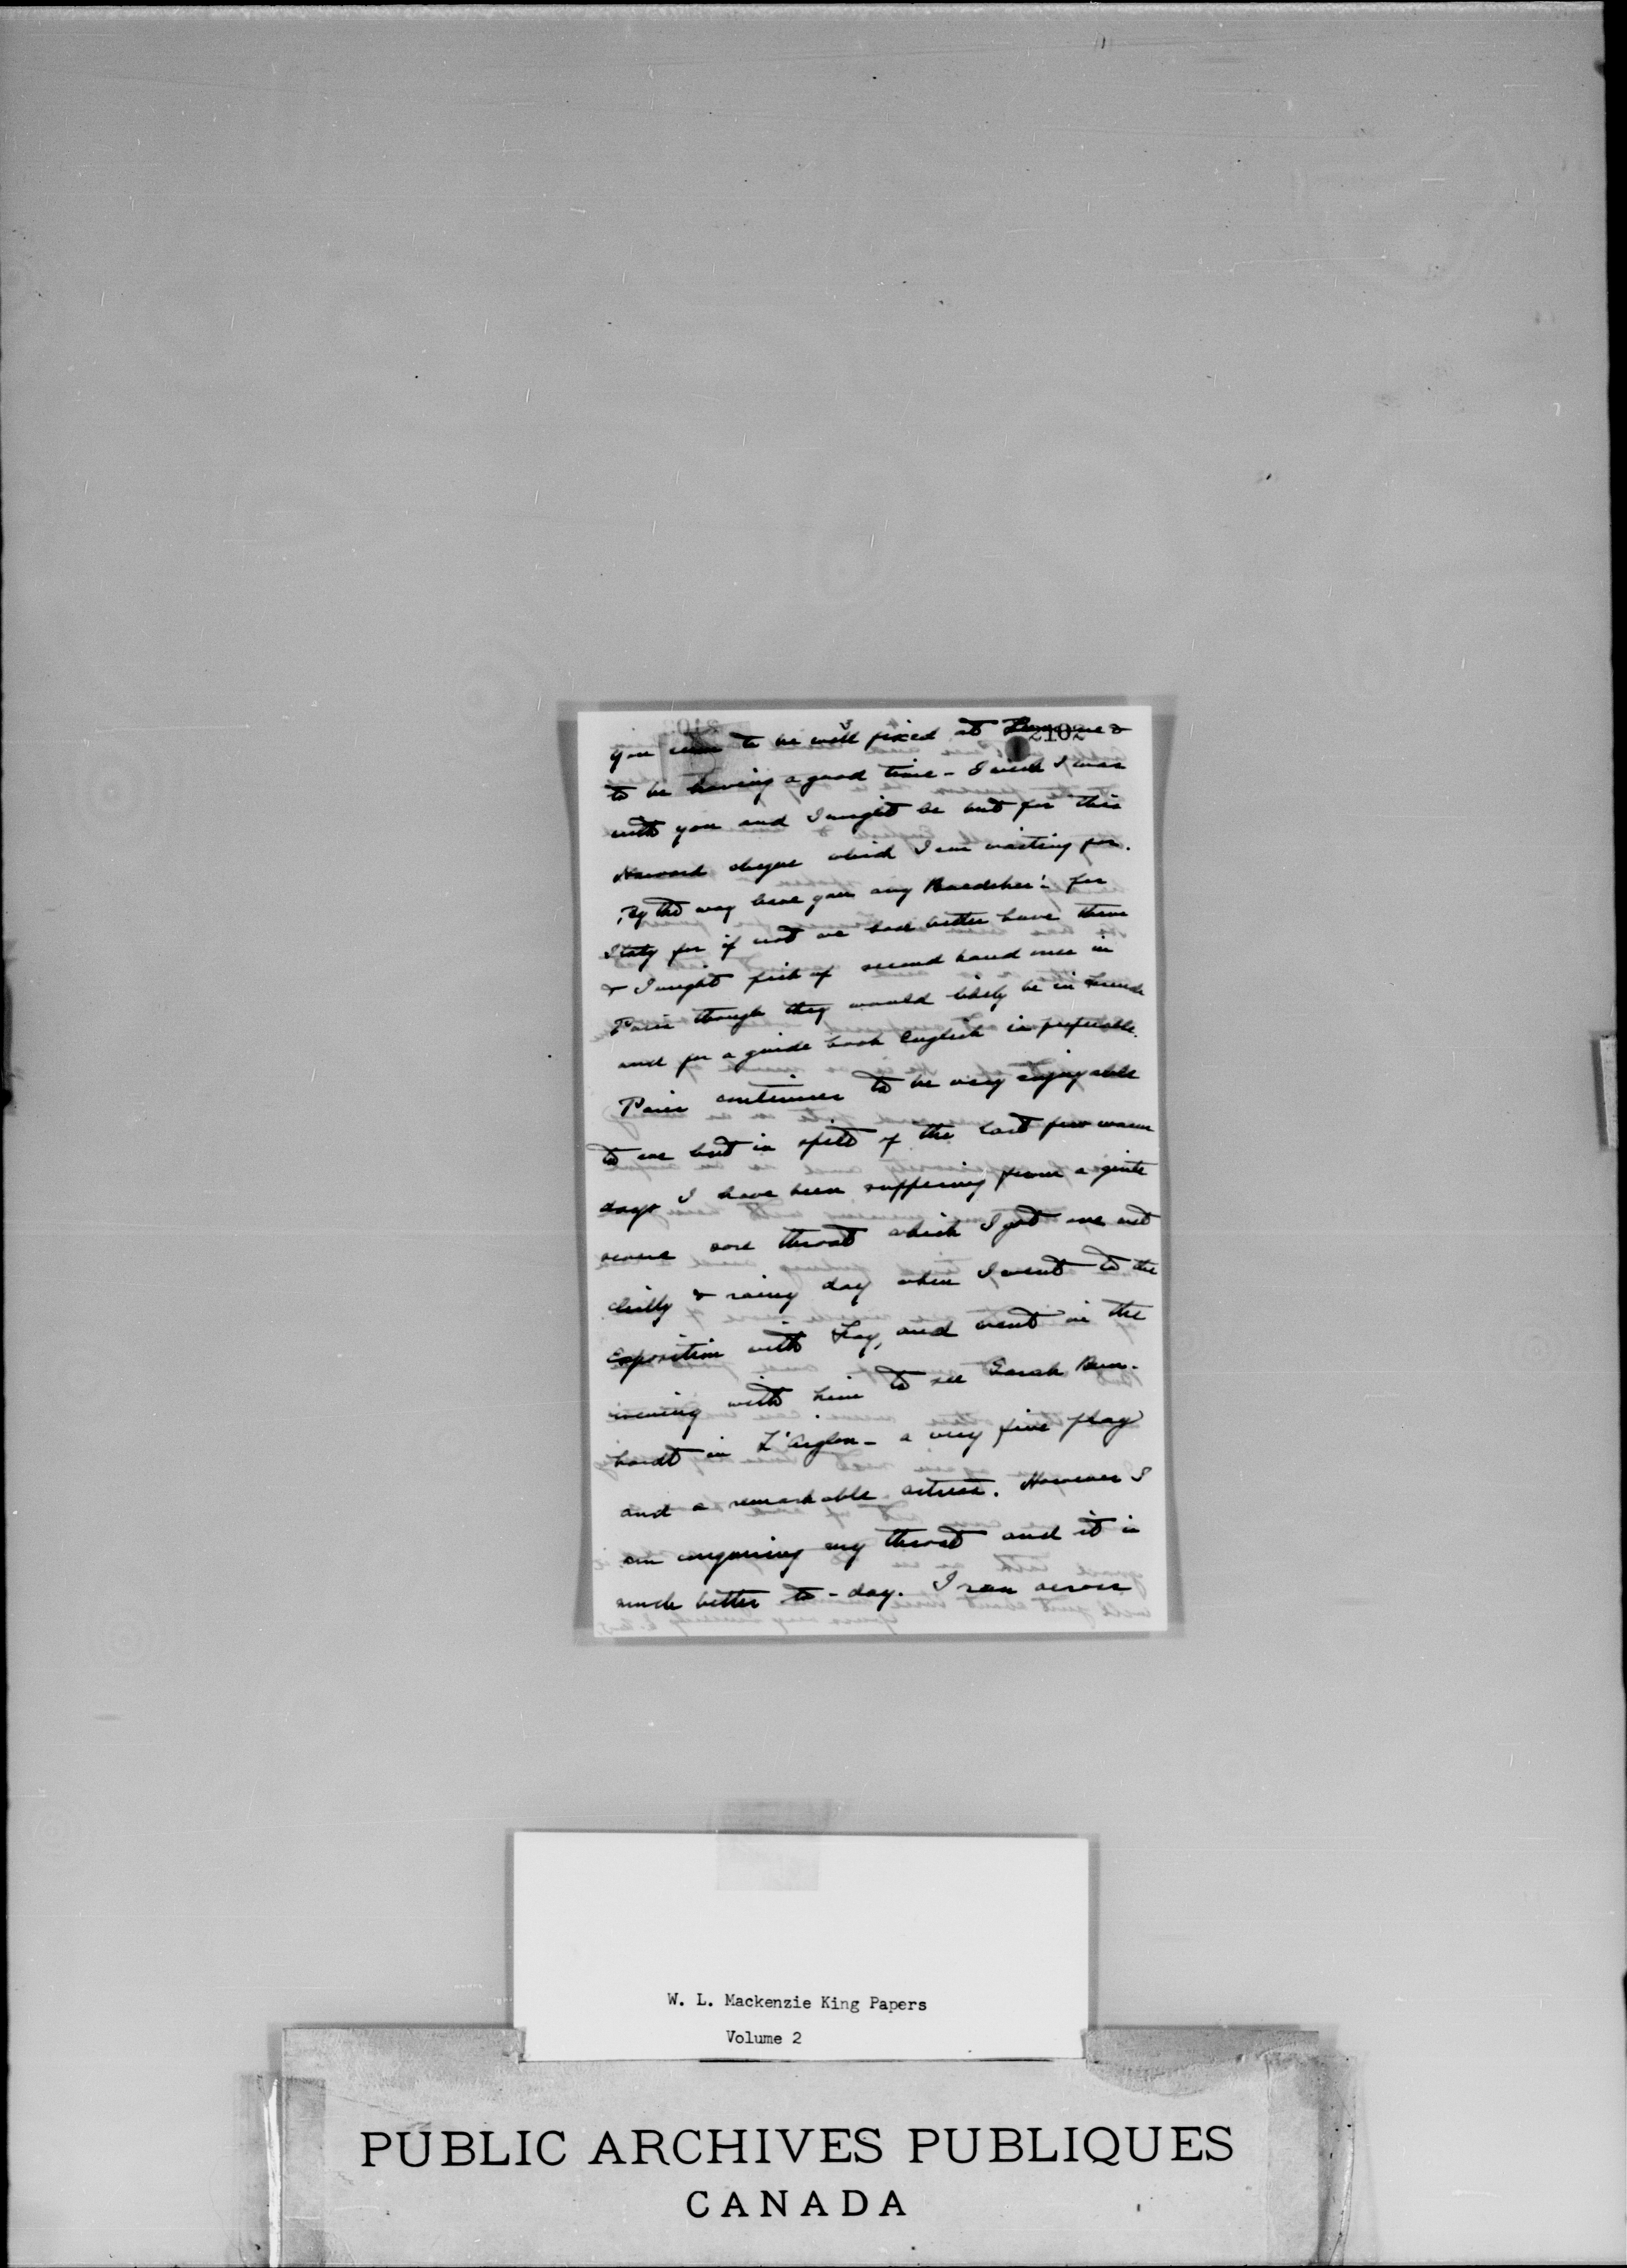 2102
you seem to be well fixed at &
to be having a good time - I wish I was
with you and I might be but for this
Harvard cheque which I am waiting for.
By the way have you any Baedeker's for
Italy for if not we had better have them
& I might pick up second hand ones in
Paris though they would likely be in French
and for a guide book English is preferable.
Paris continues to be very enjoyable
to me but in spite of the last few warm
days I have been suffering from a quite
severe sore throat which I got one wet
chilly & rainy day when I went to the
Exposition with Fay, and went in the
evening with him to see Sarah Bern-
hardt in L'Aiglon - a very fine play
and a remarkable actress. However I
am conquering my throat and it is
much better to-day. I ran across
W. L. Mackenzie King Papers
Volume 2
PUBLIC ARCHIVES PUBLIQUES
CANADA